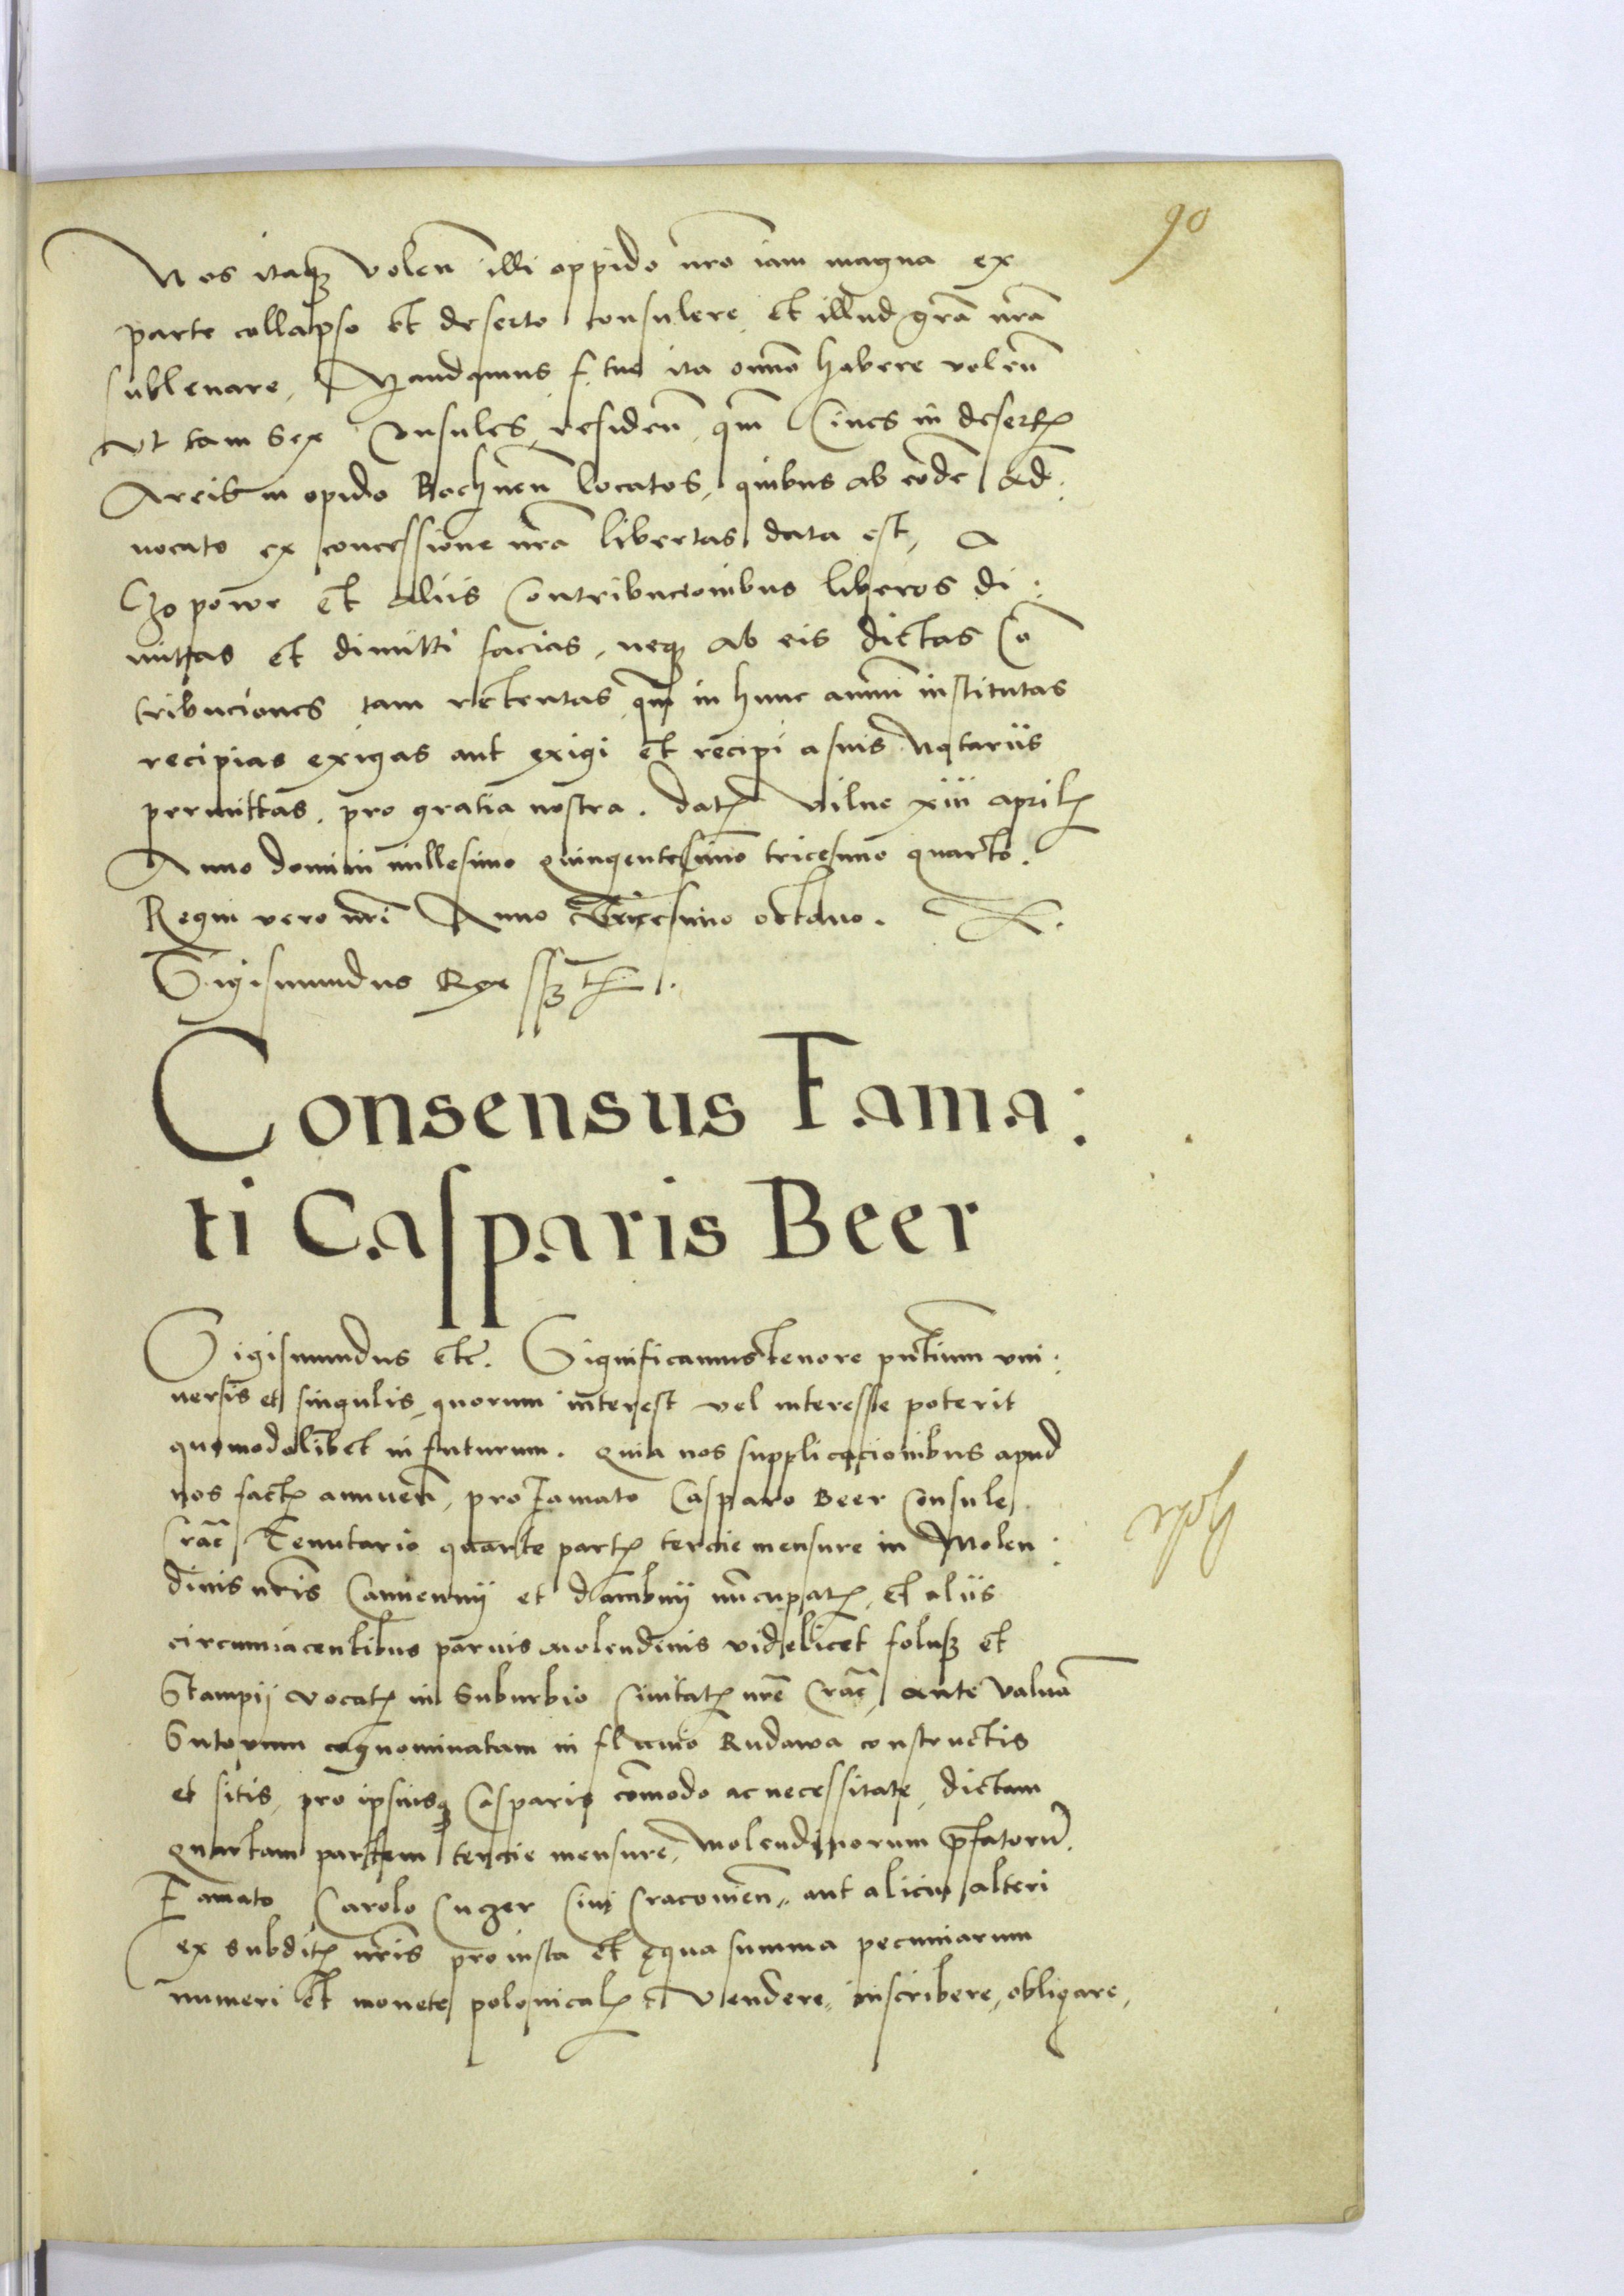 90
Nos itaq̃ volen̄ illi oppido nr̄o iam magna ex
parte collapso et deserto consulere et illud grā nr̄a
sublevare, Mandamus f. tue ita om̄no habere volen̄
Ut tam Sex Consules residen̄, qm̄ Cives in desertis
Areis in opido Bochnen̄ locatos, quibus ab eodē Ad:
vocato ex concessione nr̄a libertas data est, A
Czopowe et aliis Contribucionibus liberos di:
mittas et dimitti facias, neq̃ ab eis dictas Cō
tribuciones tam retentas qm̄ in hunc annū institutas
recipias exigas aut exigi et recipi a suis Notariis
permittas, pro gratia nostra. Datę Vilne xiii aprilę
Anno domini millesimo quingentesimo tricesimo quarto.
Regni vero nr̄i Anno Tricesimo octavo.
Sigismundus Rex sszt.
Consensus Fama:
ti Casparis Beer
Sigismundus etc̄. Significamus tenore pn̄tium uni:
versis et singulis, quorum interest vel interesse poterit
quomodolibet in futurum. Quia nos supplicacionibus apud
nos factę annuen̄, pro Famato Casparo Beer Consule
Crac̄ Tenutario quarte partę tercie mensure in Molen:
dinis nr̄is Camenny et dambny nūcupatę, et aliis
circumiacentibus parvis molendinis videlicet folusz et
Stampij vocatę in Suburbio Civitatę nr̄e Crac̄, ante valvā
Sutorum cognominatam in fluvio Rudawa constructis
et sitis, pro ipsiusq̃ Casparis cōmodo ac necessitate, dictam
quartam partem tercie mensure, molendinorum p̄fatorū.
Famato Carolo Cuger Civi Cracovien̄, aut alicui alteri
ex subditę nr̄is pro iusta et ęqua summa pecuniarum
numeri et monete polonicalę Vendere, inscribere, obligare,